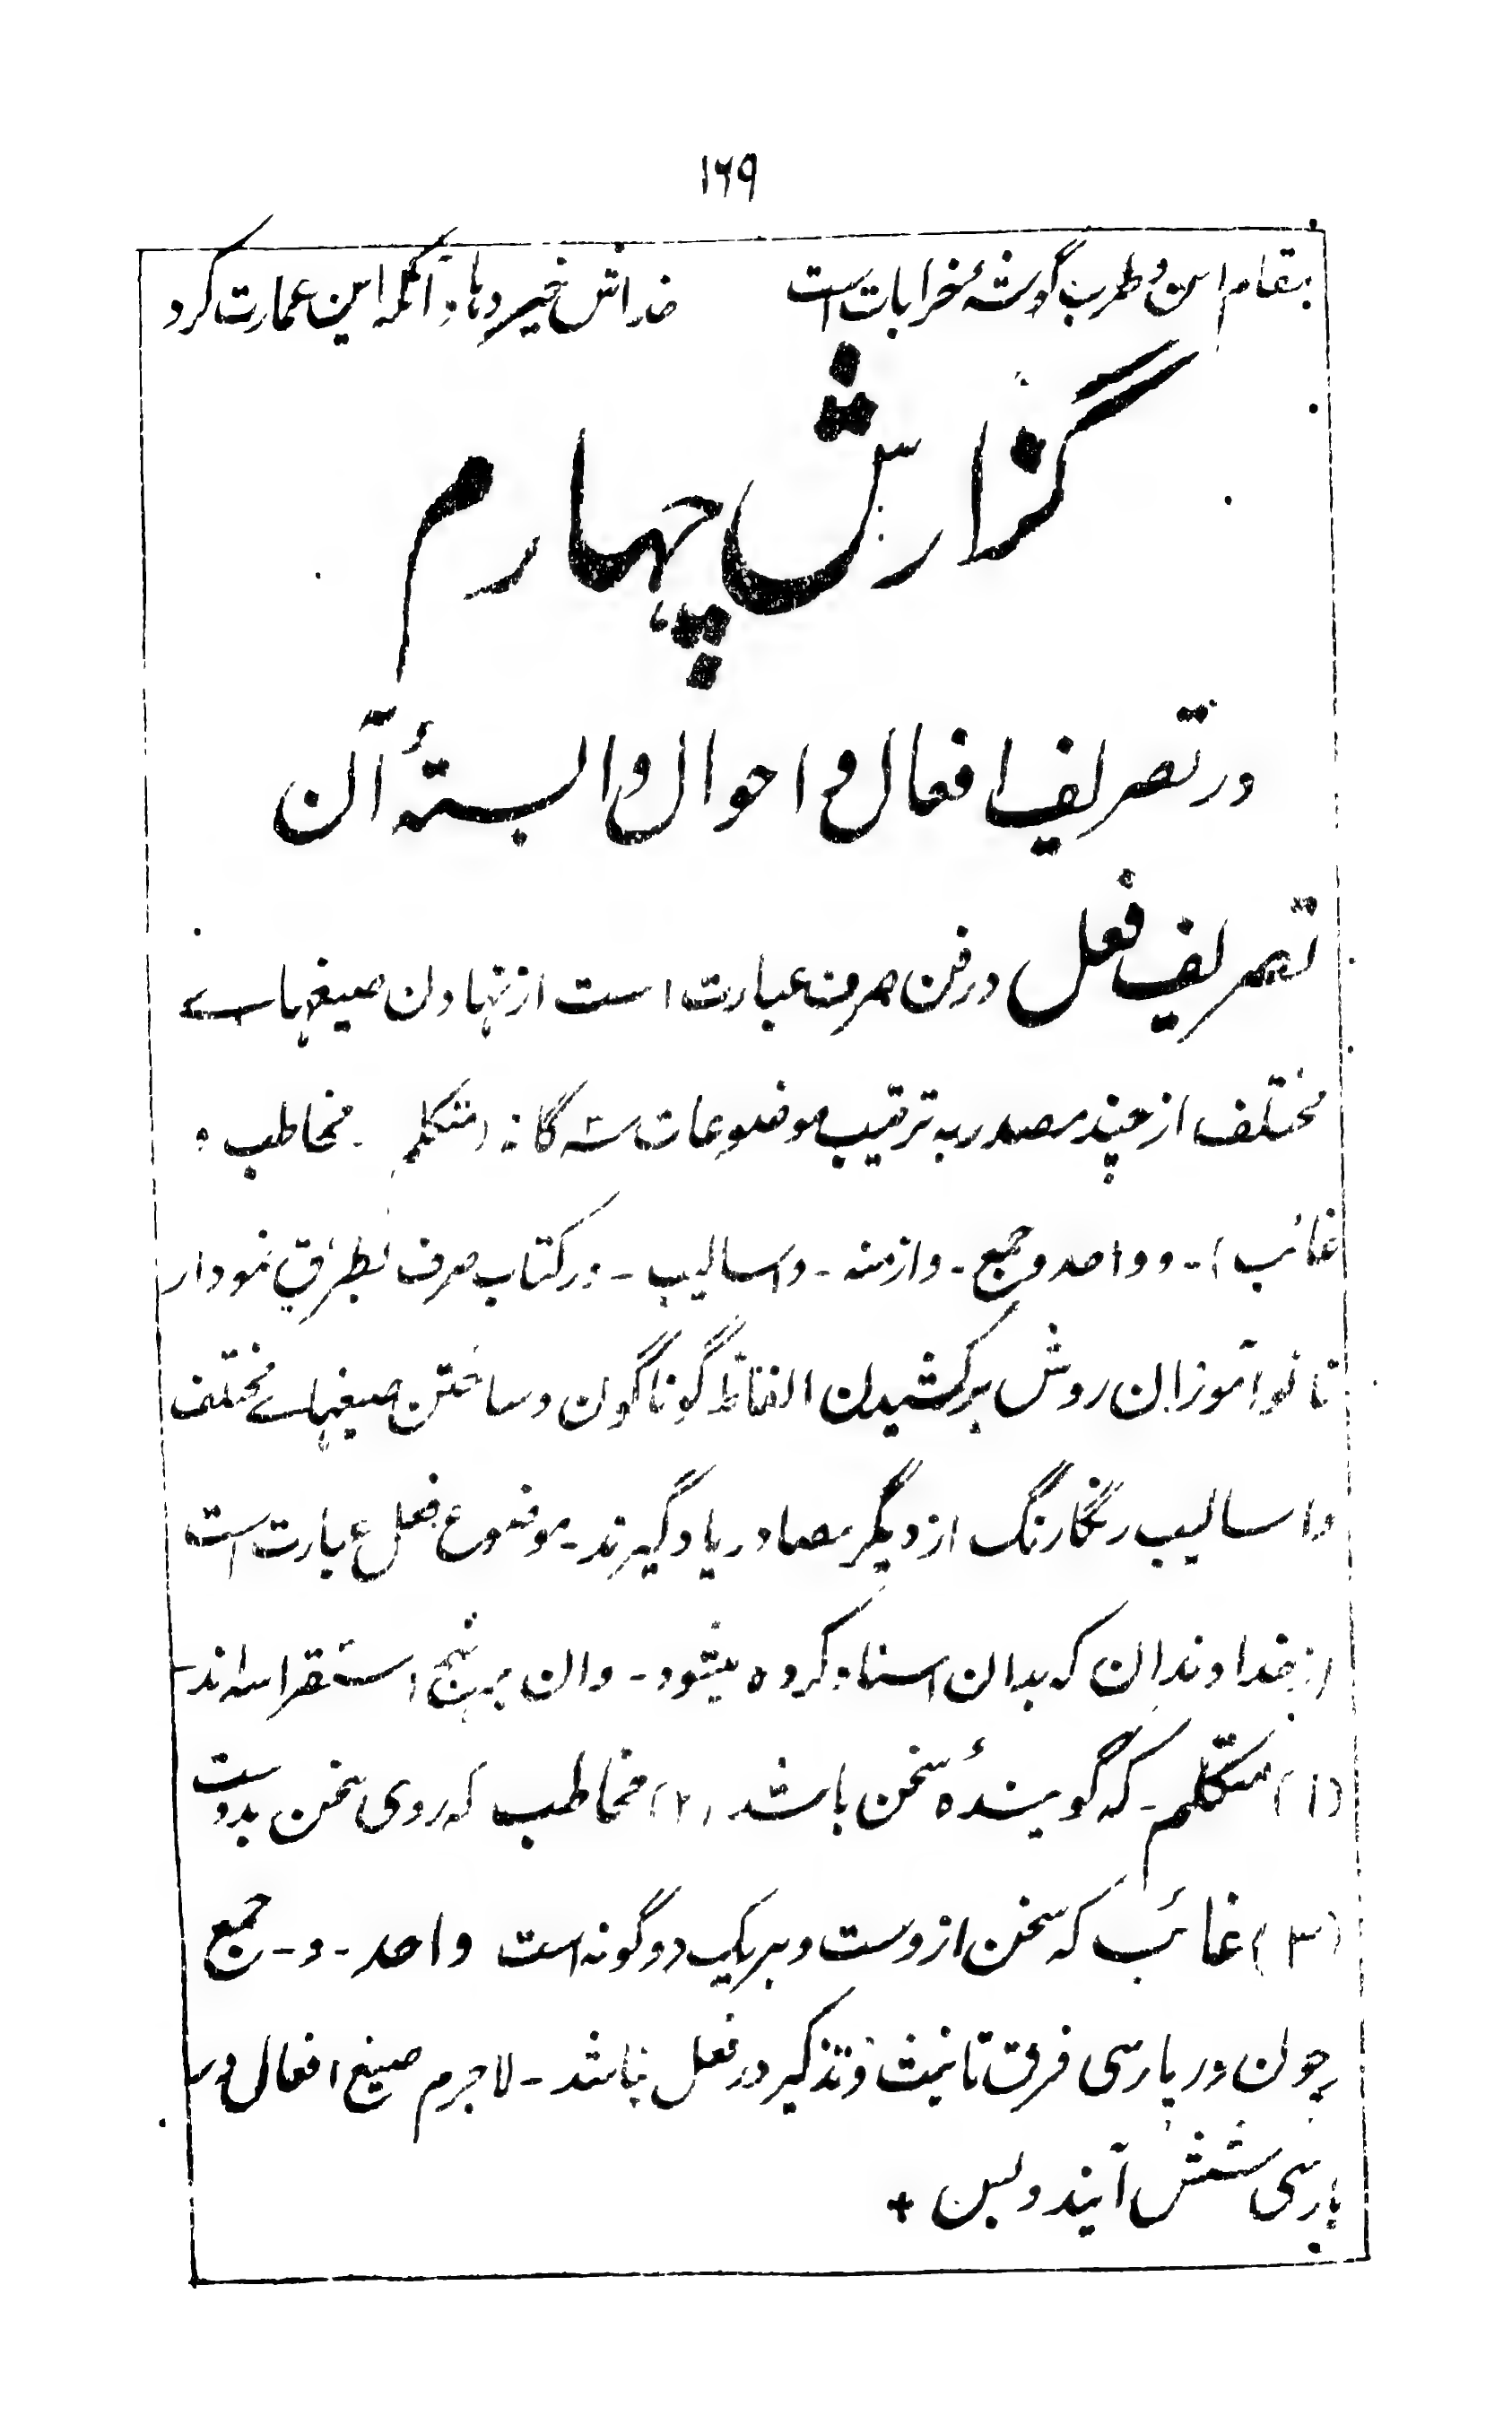 ۱۶۹
بقام امن و طرب گوشهٔ خرابات است خداش خیر دهاد آنکه این عمارت کرد
گزارش چهارم
در تصریف افعال و احوال وابستهٔ آن
تصریف فعل در فن صرف عبارت است از نهادن صیغهاے
مختلف از چند مصدر به ترتیب موضوعات سه گانه (متکلم - مخاطب و
غائب) - و واحد و جمع - و ازمنه - و اسالیب - در کتاب صرف بطریق نمودار
تا نوآموزان روش برکشیدن الفاظ گوناگون و ساختن صیغهاے مختلف
و اسالیب رنگارنگ از دیگر مصادر یاد گیرند - موضوع فعل عبارت است
از خداوندان که بدان اسناد کرده میشود - و ان بر نهج استقرا سه اند -
(۱) متکلم - که گویندهٔ سخن باشد (۲) مخاطب که روی سخن بدوست
(۳) غائب که سخن ازوست و هر یک دو گونه است واحد - و - جمع
چون در پارسی فرق تانیث و تذکیر در فعل نباشد - لاجرم صیغ افعال در
پارسی شش آیند و بس +